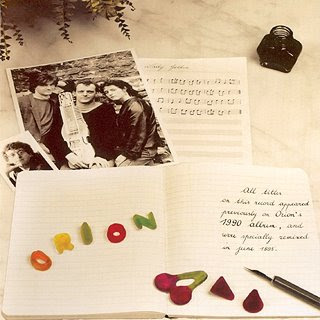 ORION
All titles
on this record appeared
previously on Orion's
1990 album, and
were specially remixed
in june 1991.